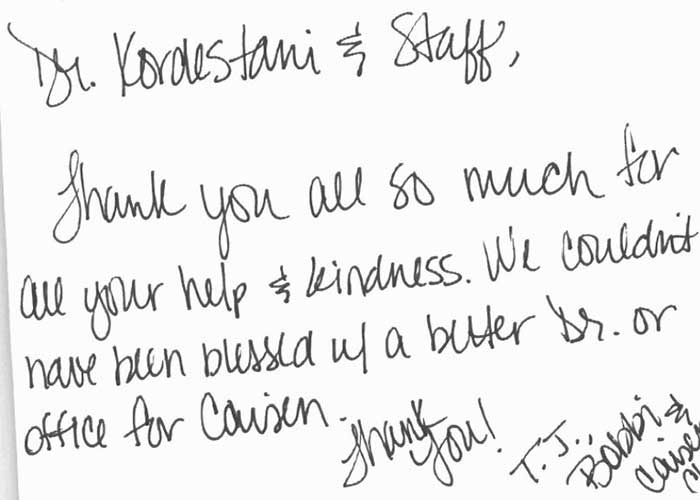 Dr. Kordestani & Staff,
Thank you all so much for
all your help & kindness. We couldn't
have been blessed w/ a better Dr. or
office for Caisen.
Thank
You!
T.J.,
Bobbi &
Caisen